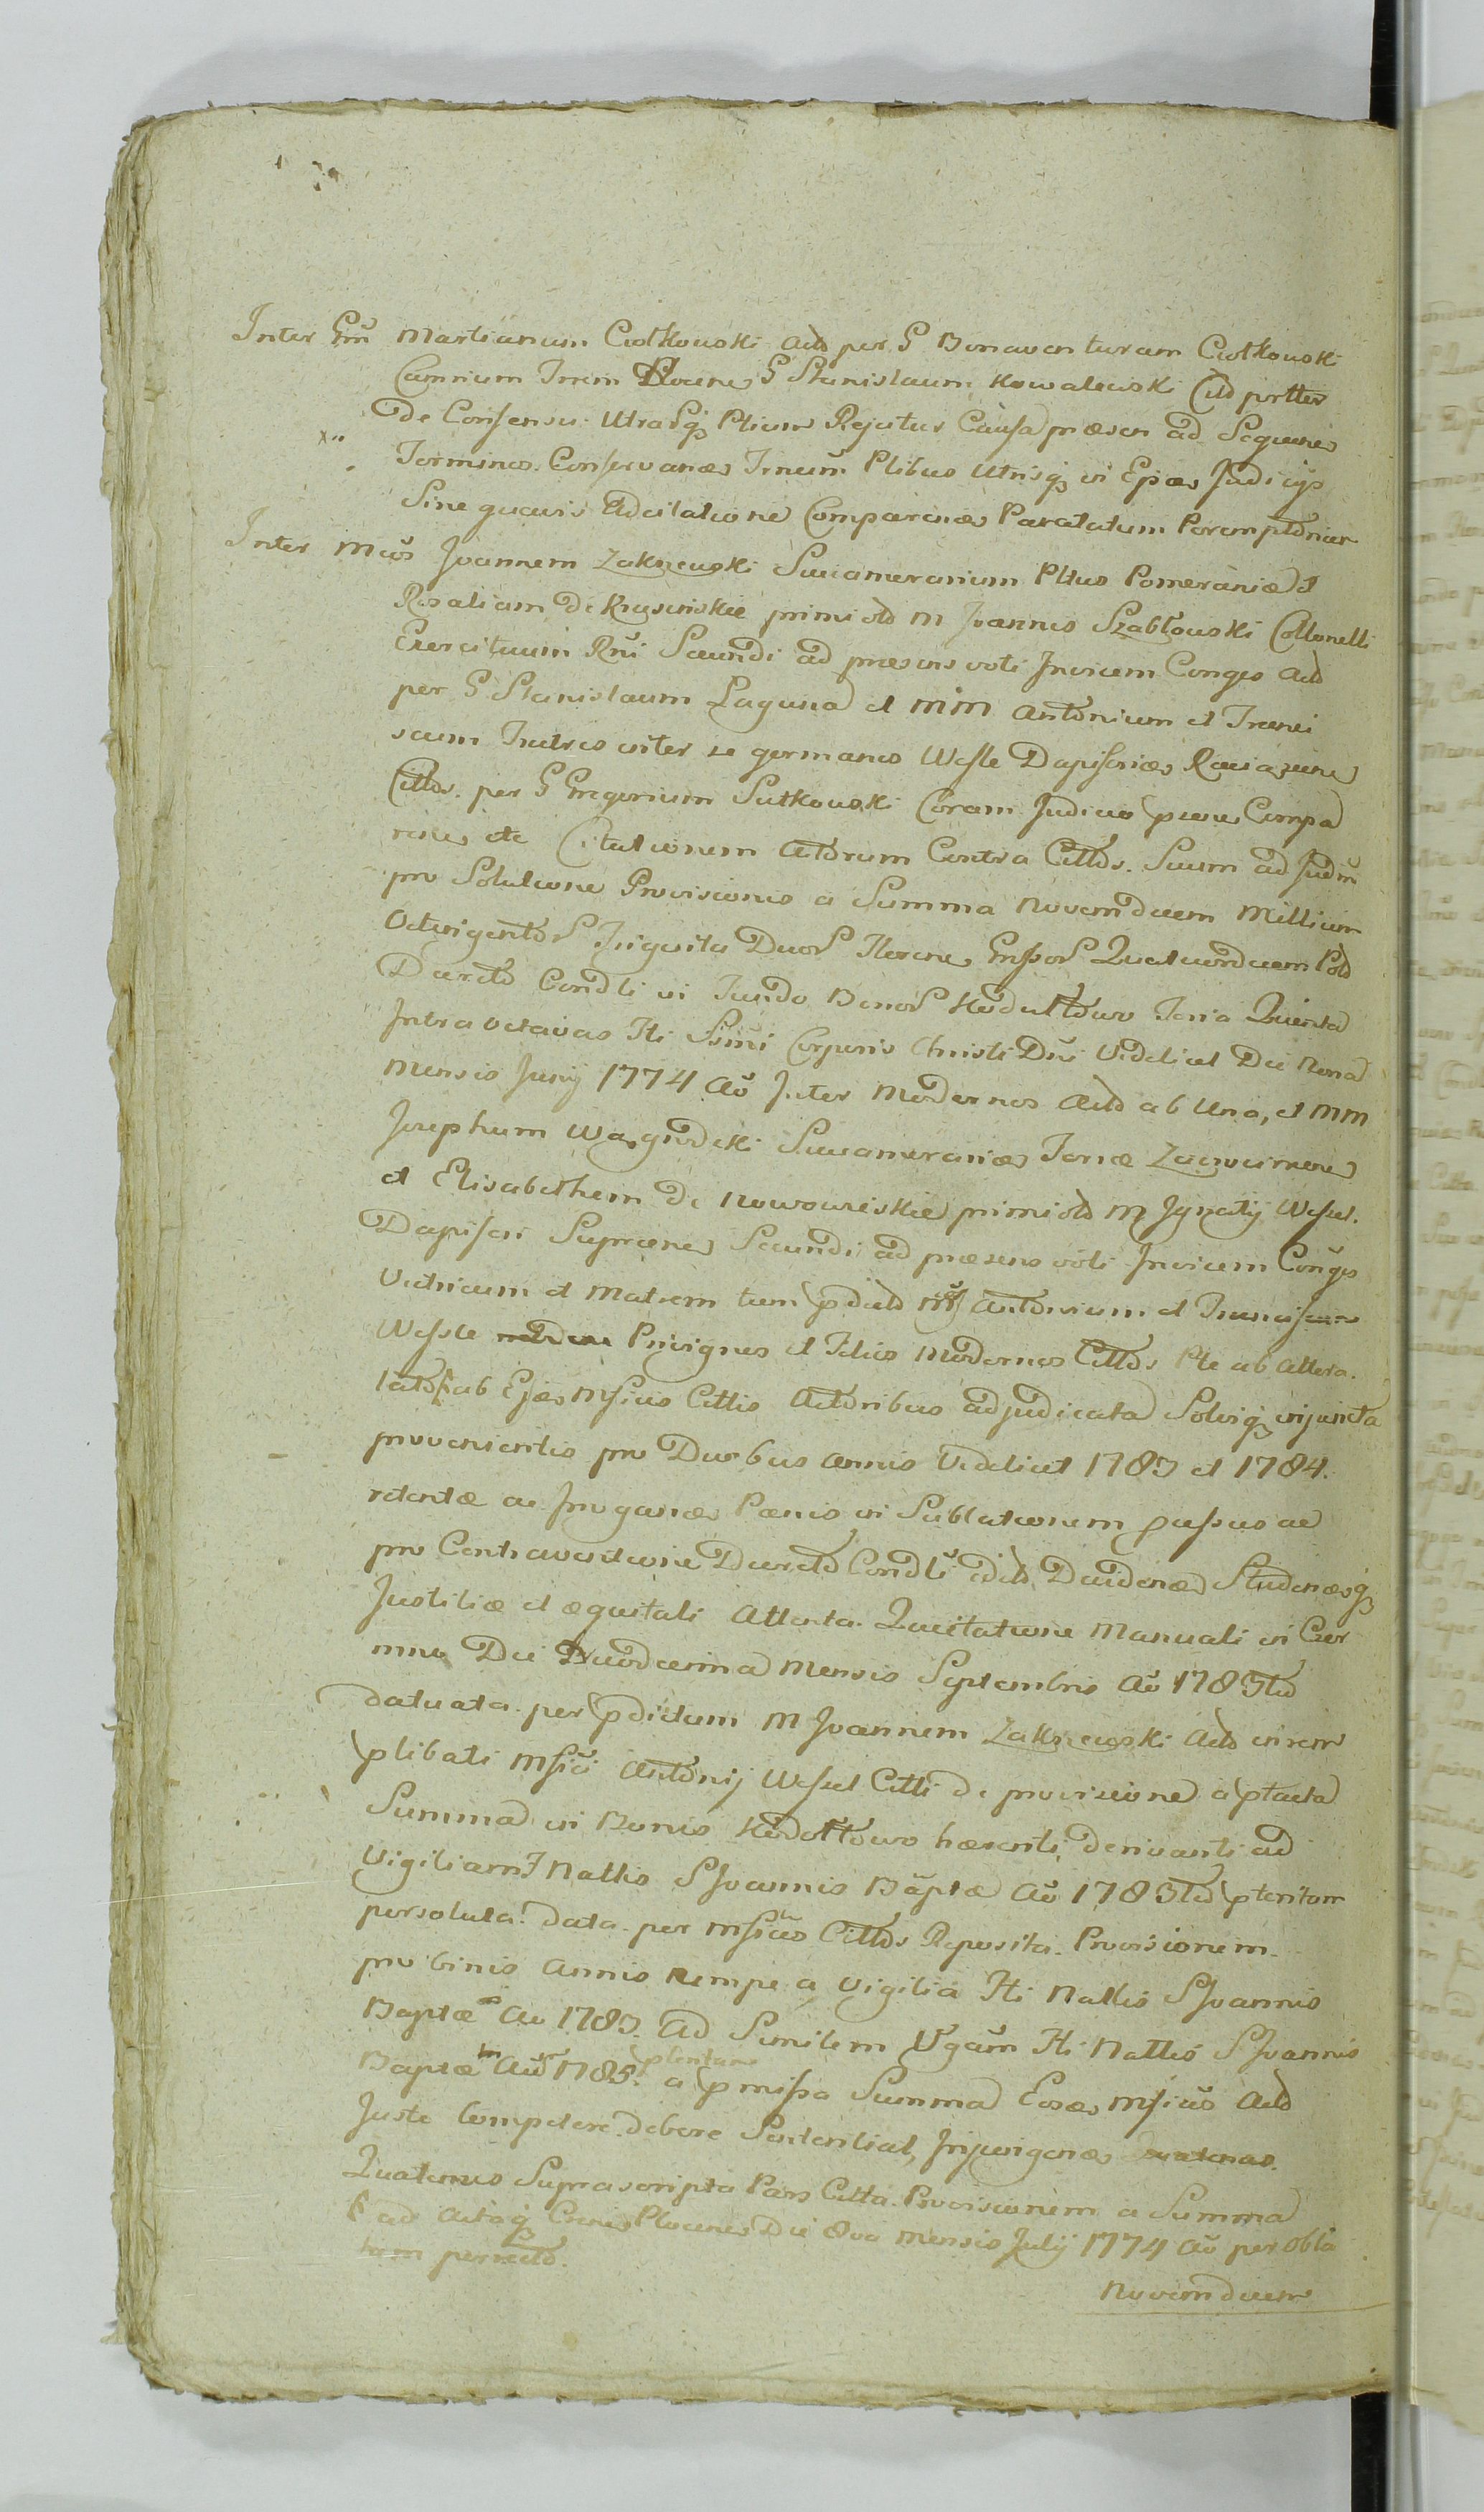 Inter Gm Martianum Ciołkowski Actd per G Bonaventuram Ciołkowski
Camrium Trrm Plocene G Stanislaum Kowalewski Citd prtter
De Consensu Utrasq Ptium Rejctur Causa præsen ad Seqvenes
Terminos Conservanæ Trnum Ptibus Utrisq in Ejsæ Judicijs
Sine quavis Adcitatione Comparenæ Paratatum Peremptoriam
Inter Mcos Joannem Zakrzewski Succamerarium Pttus Pomeraniæ et
Rosaliam De Krasinskie primi old M Joannis Szabłowski Collonelli
Exercituum Rni Secundi ad præsens voti Invicem Conges Actd
per G Stanislaum Laguna et MM Antonium et Franci
scum Fratres inter se germanos Wessle Dapiferiæ Ravazene
Cittos per G Gregorium Sutkowski Coram Judicio præne Compa
rene etc Citationem Actorum Contra Cittos Suum ad Judm
pro Solutione Provisionis a Summa Novemdecem Millium
Octingentor Triginta Duor Floreno Grssor Quatuordecem Pold
Decreto Condli in Fundo Bonor Kodułtowo Feria Quinta
Intra octavas Fti Ssmi Corporis Christi Dni Videlicet Die Nona
Mensis Junij 1774 Ao Inter Modernos Actd ab Una, et MM
Josephum Wagrodzki Succamerariæ Terræ Zacrocimene
et Elisabetham De Nowowieskie primi old M Ignatij Wessel
Dapiferi Supræne Secundi ad præsens voti Invicem Conges
Vitricum et Matrem tum pdictd MM Antonium et Franciscum
Wessle Privignos et Filios Modernos Cittos Pte ab Altera
lato ab Ejsæ Msicis Cittis Actoribus adjudicata Solviq injuncta
provenientis pro Duobus Annis Videlicet 1783 et 1784.
retentæ ac Irroganæ Pænis in Sublationem passus ac
pro Contraventione Decreto Condli edito Decidenæ Studenæq
Justitiæ et æquitati Attenta Quietatione Manuali in Cer
mno Die Duodecima Mensis Septembris Ao 1783tio
datuata per pdictum M Joannem Zakrzewski Actd in rem
plibati Msici Antonij Wessel Citti de provisione a ptacta
Summa in Bonis Kodołtowo hærenti, derivanti ad
Vigiliam F Nattis S Joannis Baptæ Ao 1783tio ptentam
persoluta data per Msicos Cittos Reposita Provisionem
pro binis Annis Nempe a Vigilia Fti Nattis S Joannis
Baptæ Ao 1783. Ad Similem Vgam Fti Nattis S Joannis
Baptæ Aum 1785. ptentam a pmissa Summa Eosæ Msicos Actd
Juste Competere debere Sententiat, Injungenæ
Quatenus Suprascripta Pars Citta Provisionem a Summa
ad Actaq Crnes Plocenes Die 8va Mensis Julij 1774 Ao per obla
tam perrecto.
Novemdecem